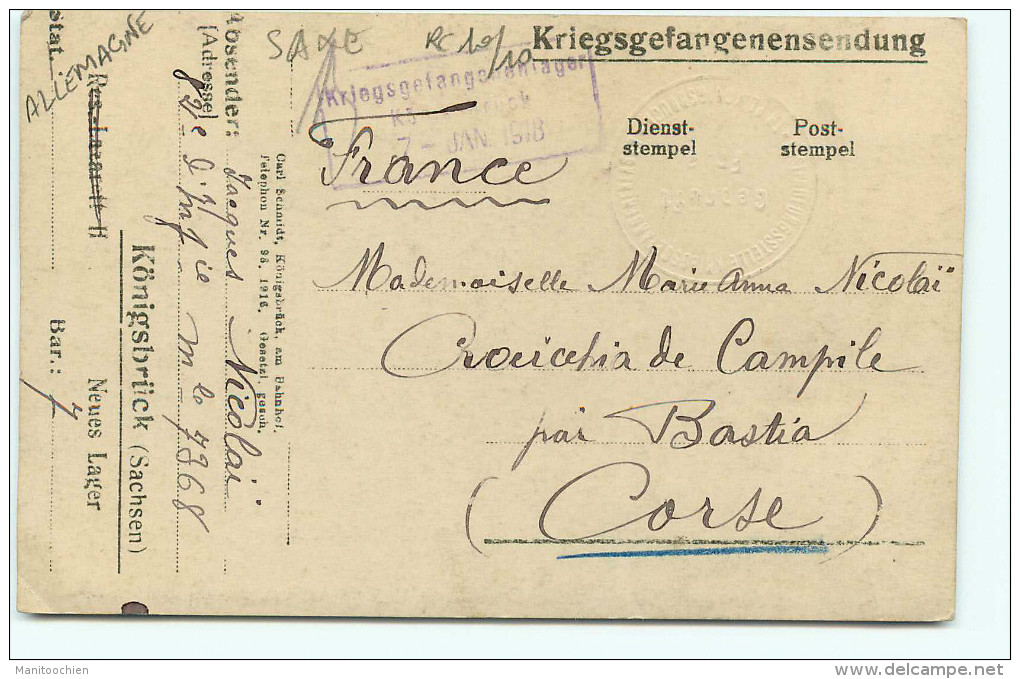 ALLEMAGNE
SAXE
RC 10/10
Kriegsgefangenensendung
Kriegsgefangenenlager
7 - JAN. 1918
Dienst-
stempel
Post-
stempel
France
Mademoiselle Marie Anna Nicolaï
Crocicchia de Campile
par Bastia
(Corse)
Carl Schmidt, Königsbrück, am Bahnhof.
Telephon Nr. 98. 1916. Gesetzl. gesch.
Absender:
Jacques Nicolaï
[Adresse]
82e d'Infie mle 7368
Königsbrück (Sachsen)
Res.-Lazarett II
Neues Lager
Stat.
Bar.: 7
Manitoochien
www.delcampe.net